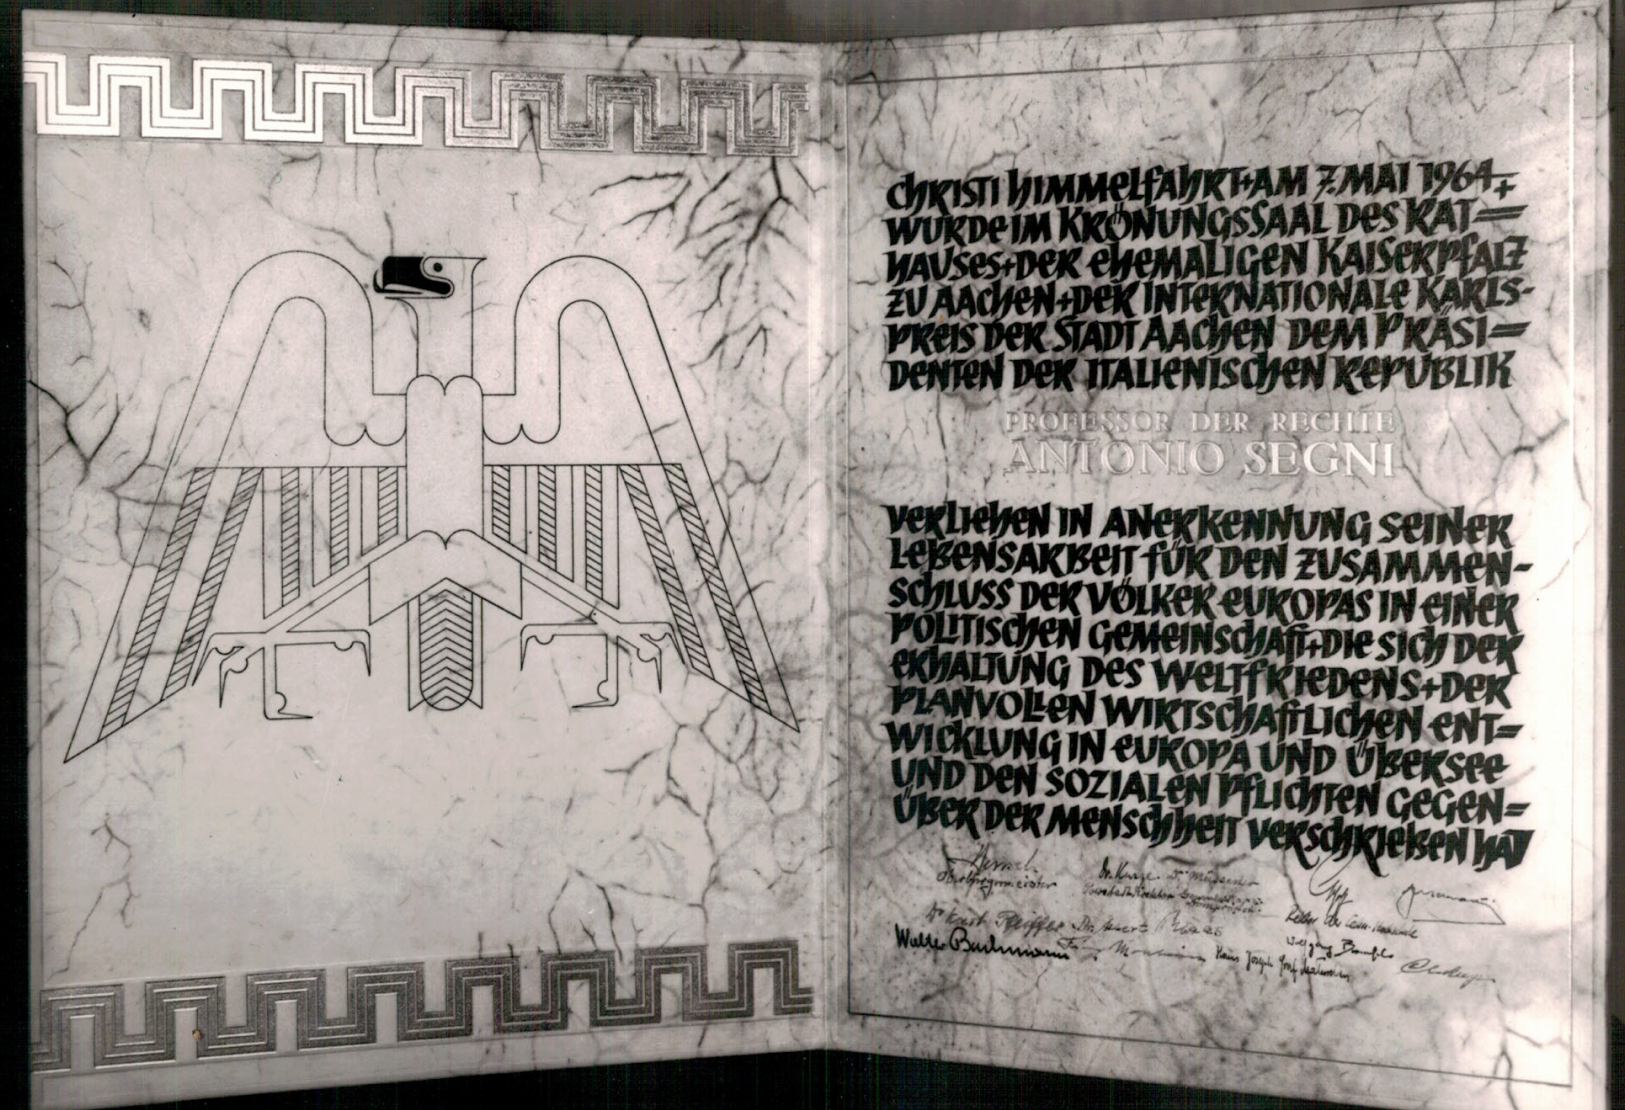 CHRISTI HIMMELFAHRT+AM 7.MAI 1964+
WURDE IM KRÖNUNGSSAAL DES RAT=
HAUSES+DER EHEMALIGEN KAISERPFALZ
ZU AACHEN+DER INTERNATIONALE KARLS-
PREIS DER STADT AACHEN DEM PRÄSI=
DENTEN DER ITALIENISCHEN REPUBLIK
PROFESSOR DER RECHTE
ANTONIO SEGNI
VERLIEHEN IN ANERKENNUNG SEINER
LEBENSARBEIT FÜR DEN ZUSAMMEN-
SCHLUSS DER VÖLKER EUROPAS IN EINER
POLITISCHEN GEMEINSCHAFT+DIE SICH DER
ERHALTUNG DES WELTFRIEDENS+DER
PLANVOLLEN WIRTSCHAFTLICHEN ENT=
WICKLUNG IN EUROPA UND ÜBERSEE
UND DEN SOZIALEN PFLICHTEN GEGEN=
ÜBER DER MENSCHHEIT VERSCHRIEBEN HAT
Oberbürgermeister
Pfeiffer
Walter Bachmann